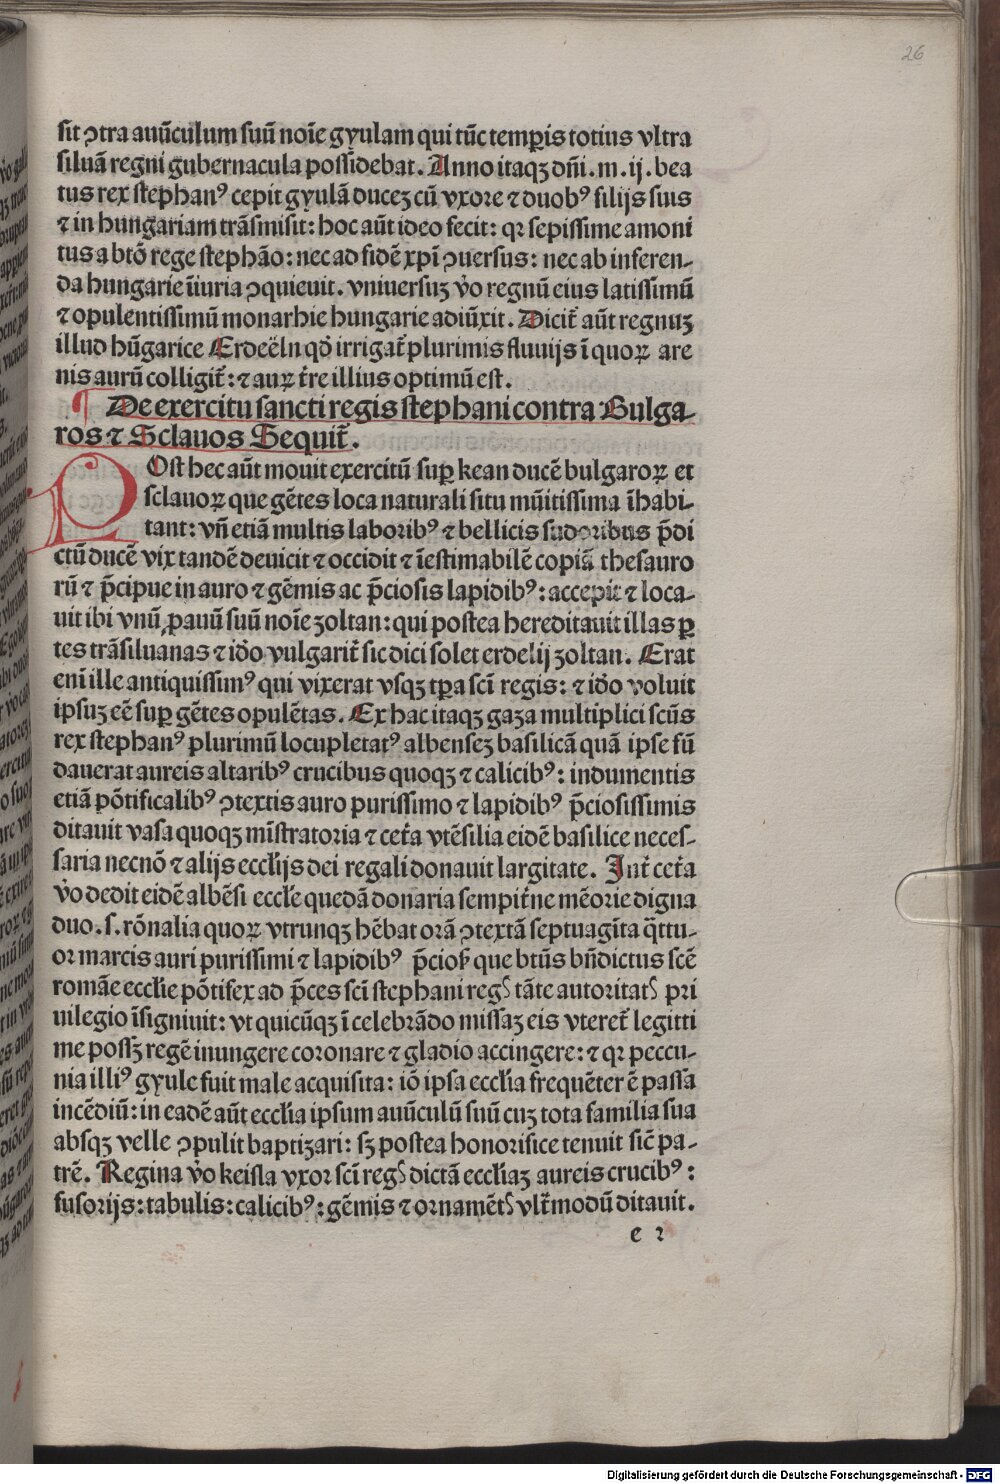 26
sit ꝯtra auũculum suũ noĩe gyulam qui tũc temꝑis totius vltra
siluã regni gubernacula possidebat. Anno itaqꝫ dñi. m. ij. bea
tus rex stephanꝰ cepit gyulã duceꝫ cũ vxore ⁊ duobꝰ filijs suis
⁊ in hungariam trãsmisit: hoc aũt ideo fecit: qꝛ sepissime amoni
tus a btõ rege stephão: nec ad fidẽ xp̃i ꝯuersus: nec ab inferen-
da hungarie ĩiuria ꝯquieuit. vniuersuꝫ v̊o regnũ eius latissimũ
⁊ opulentissimũ monarhie hungarie adiũxit. Dicit̃ aũt regnuꝫ
illud hũgarice Erdeëln qđ irrigat̃ plurimis fluuijs ĩ quoꝝ are
nis aurũ colligit̃: ⁊ auꝝ t̃re illius optimũ est.
¶ De exercitu sancti regis stephani contra Bulga-
ros ⁊ Sclauos Sequit̃.
POst hec aũt mouit exercitũ suꝑ kean ducẽ bulgaroꝝ et
sclauoꝝ que gẽtes loca naturali situ mũitissima ĩhabi-
tant: vñ etiã multis laboribꝰ ⁊ bellicis sudoribus p̃di
ctũ ducẽ vix tandẽ deuicit ⁊ occidit ⁊ ĩestimabilẽ copiã thesauro
rũ ⁊ p̃cipue in auro ⁊ gẽmis ac p̃ciosis lapidibꝰ: accepit ⁊ loca-
uit ibi vnũ ꝓauũ suũ noĩe zoltan: qui postea hereditauit illas ꝑ
tes trãsiluanas ⁊ iđo vulgarit̃ sic dici solet erdelij zoltan. Erat
enĩ ille antiquissimꝰ qui vixerat vsqꝫ tꝑa scĩ regis: ⁊ iđo voluit
ipsuꝫ eẽ suꝑ gẽtes opulẽtas. Ex hac itaqꝫ gaza multiplici scũs
rex stephanꝰ plurimũ locupletatꝰ albenseꝫ basilicã quã ipse fũ
dauerat aureis altaribꝰ crucibus quoqꝫ ⁊ calicibꝰ: indumentis
etiã põtificalibꝰ ꝯtextis auro purissimo ⁊ lapidibꝰ p̃ciosissimis
ditauit vasa quoqꝫ mĩstratoria ⁊ cet̃a vtẽsilia eidẽ basilice neces-
saria necnõ ⁊ alijs eccłijs dei regali donauit largitate. Int̃ cet̃a
v̊o dedit eidẽ albẽsi eccłe quedã donaria sempit̃ne mẽorie digna
duo. s. rõnalia quoꝝ vtrunqꝫ hẽbat orã ꝯtextã septuagĩta q̈ttu-
or marcis auri purissimi ⁊ lapidibꝰ p̃cioꝭ que btũs bñdictus scẽ
romãe eccłie põtifex ad p̃ces scĩ stephani regꝭ tãte autoritatꝭ pri
uilegio ĩsigniuit: vt quicũqꝫ ĩ celebrãdo missaꝫ eis vteret̃ legitti
me possꝫ regẽ inungere coronare ⁊ gladio accingere: ⁊ qꝛ peccu-
nia illiꝰ gyule fuit male acquisita: iõ ipsa eccłia frequẽter ẽ passa
incẽdiũ: in eadẽ aũt eccłia ipsum auũculũ suũ cuꝫ tota familia sua
absqꝫ velle ꝯpulit baptizari: sꝫ postea honorifice tenuit sic̃ pa-
trẽ. Regina v̊o keisla vxor scĩ regꝭ dictã eccłiaꝫ aureis crucibꝰ:
fusorijs: tabulis: calicibꝰ: gẽmis ⁊ ornamẽtꝭ vlt̃ modũ ditauit.
e 2
Digitalisierung gefördert durch die Deutsche Forschungsgemeinschaft - DFG